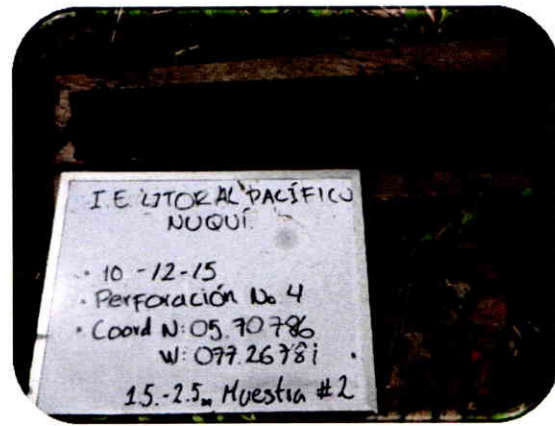 I.E LITORAL PACÍFICO
NUQUÍ.
• 10-12-15
• Perforación No 4
• Coord N: 05.70786
W: 077.26781
1.5.-2.5m Muestra #2